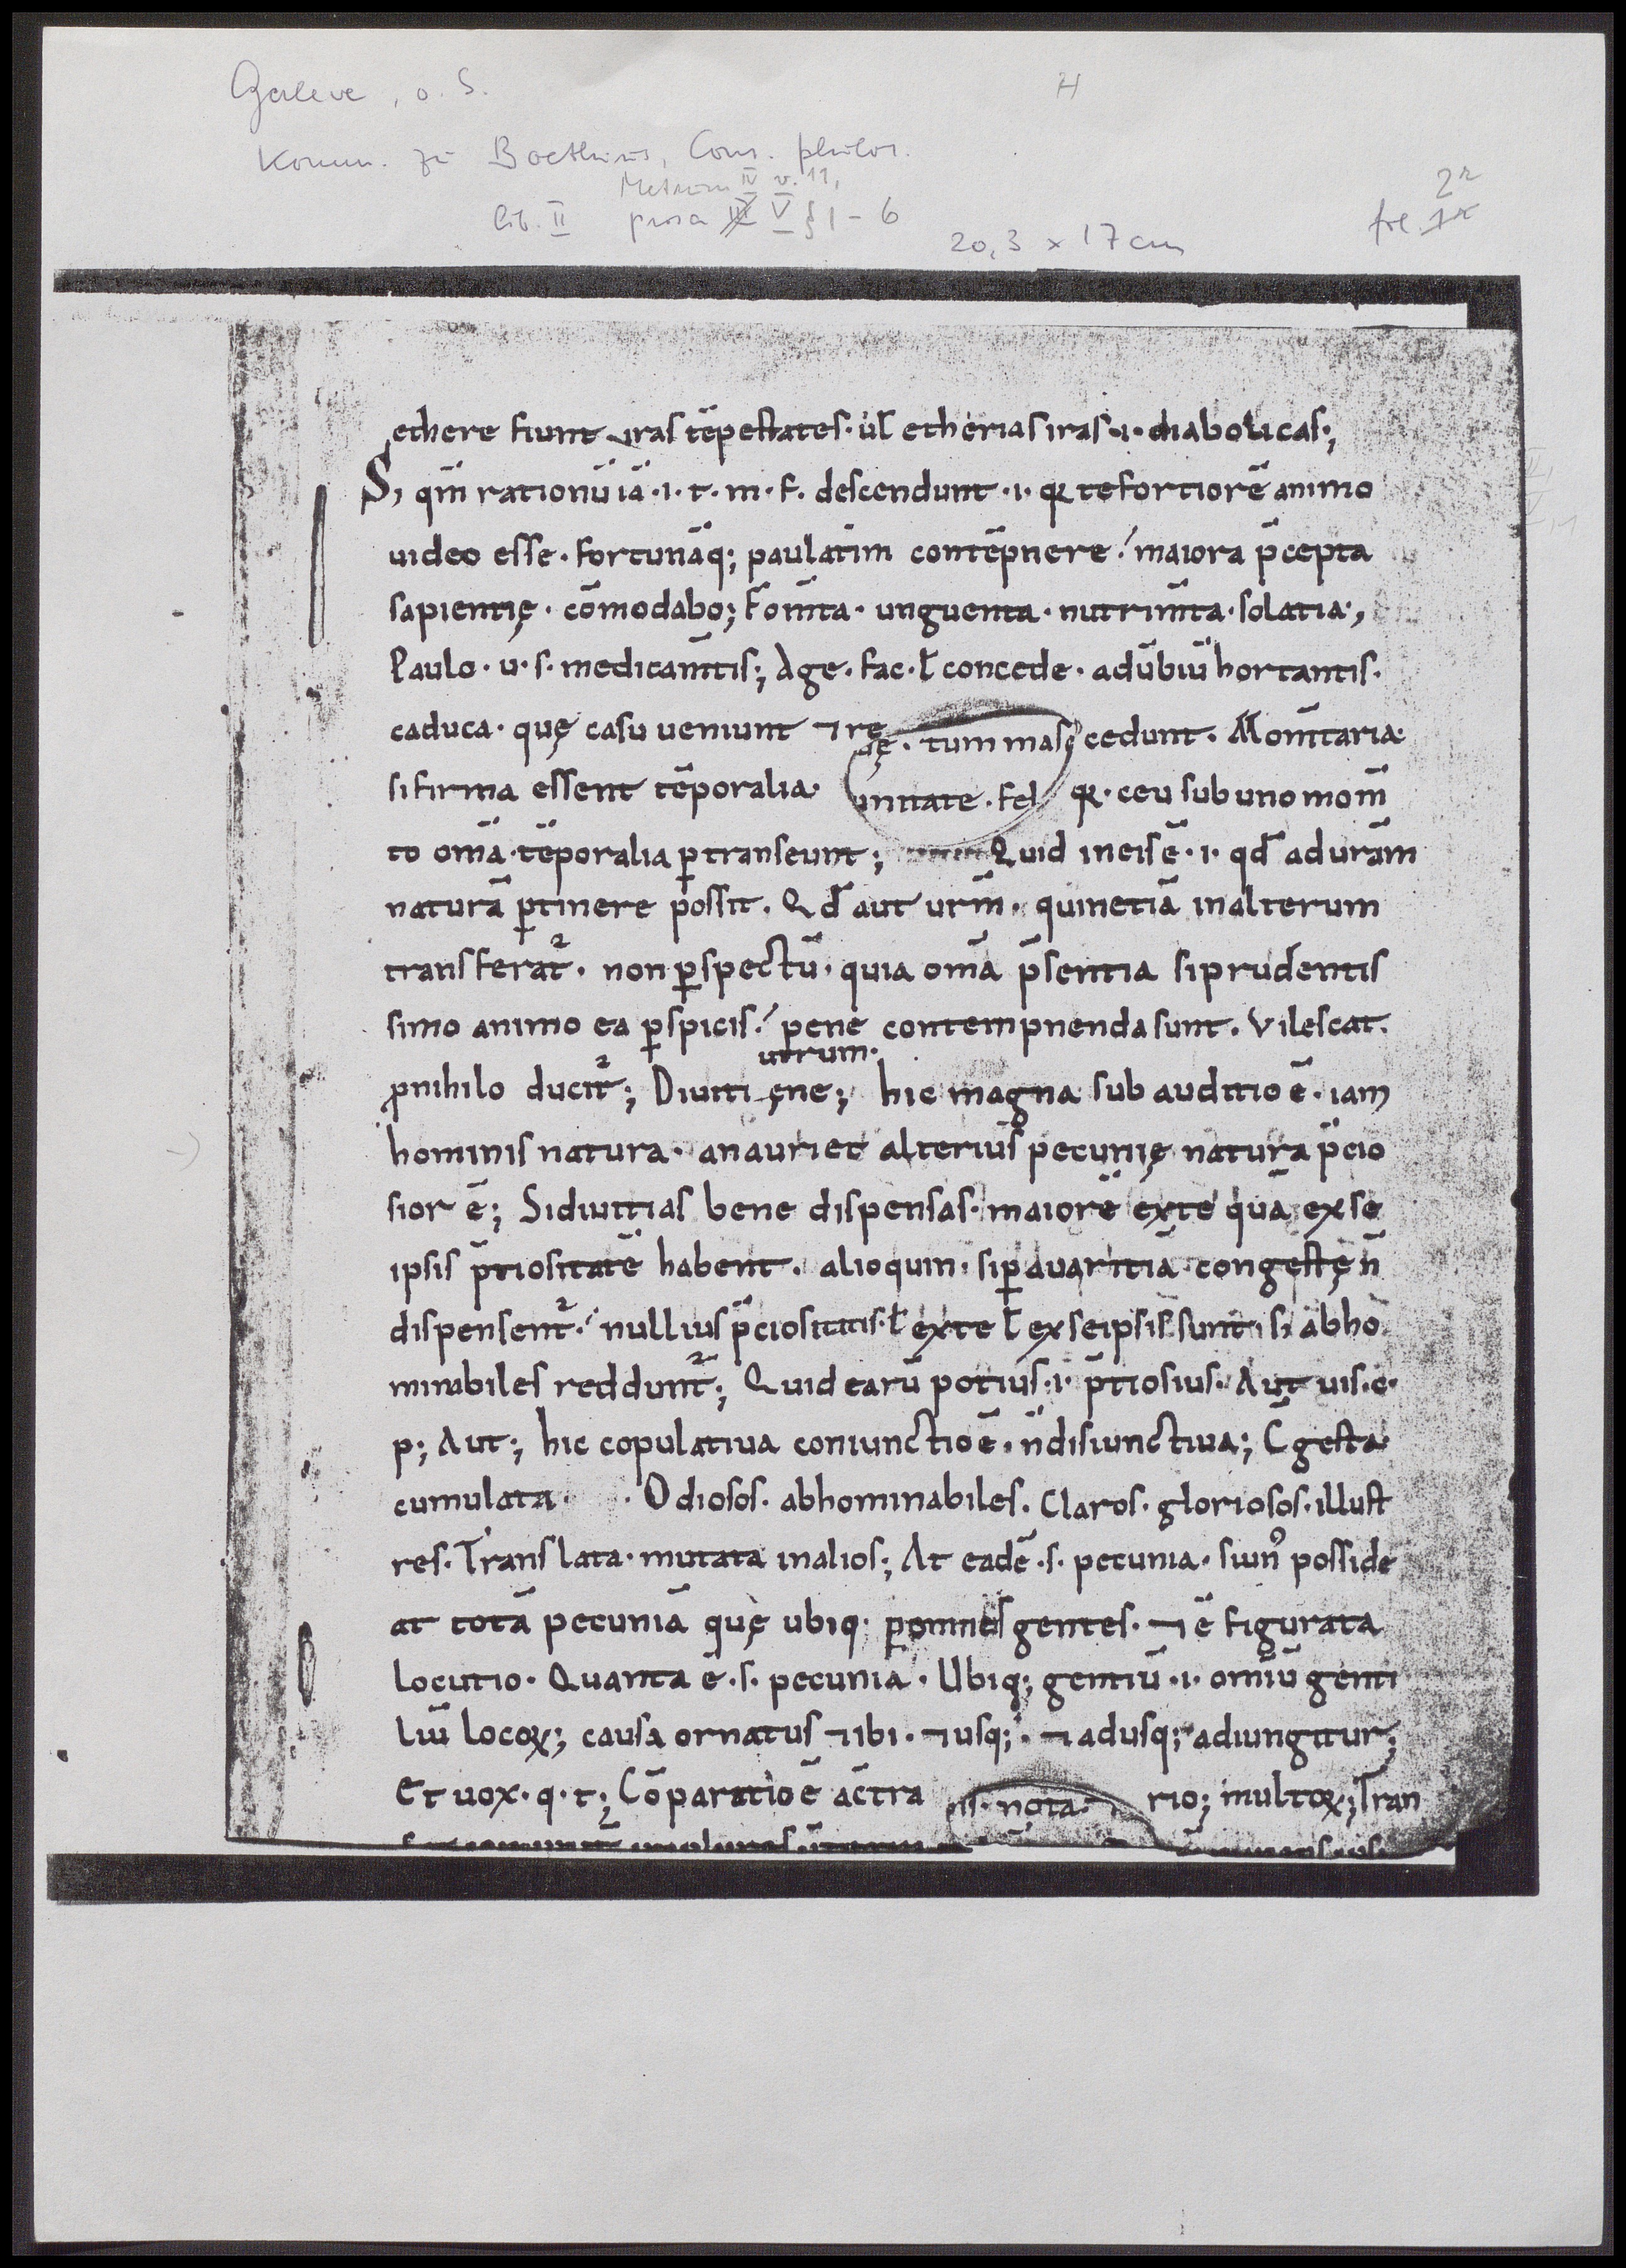 Geleve, o. S.
21
Komm. zu Boethius, Cons. philos.
Metrum IV v. 11,
lib. II prosa V § 1 - 6
2r
fol. 1r
20,3 x 17 cm
ęthere fiunt ⁊ iras tēpestates. ul̄ etherias iras .i. diabolicas;
S; qm̄ rationū iā .i. t. m. f. descendunt .i. qꝛ te fortiorē animo
uideo esse. fortunāq; paulatim contēpnere. maiora p̄cepta
sapientię. cōmodabo; Fom̄ta. unguenta. nutrim̄ta. solatia;
Paulo. u. s. medicam̄tis; Age. fac. ł concede. adūbiū hortantis.
caduca. quę casu ueniunt ⁊ re cedunt. Mom̄taria.
ę. tum mas
si firma essent tēporalia. qꝛ. ceu sub uno mom̄
unitate. fel
to om̄a. tēporalia ꝑtranseunt; Quid in eis ē .i. qđ ad uram̄
naturā ꝑtinere possit. Qđ aut urm̄. quinetiā in alterum
transferat᷑. non ꝑspectū. quia om̄a p̄sentia si prudentis
simo animo ea ꝑspicis. pene contempnenda sunt. Vilescat.
utrum.
ꝓnihilo ducit᷑; Diuiti ęne; hic magna subauditio ē. iam
hominis natura. an auri et alterius pecunię natura p̄cio
sior ē; Si diuitias bene dispensas. maiorē ex te quā ex se
ipsis p̄tiositatē habent. alioquin. si ꝑ auaritiā congestę n̄
dispensent᷑. nullius p̄ciositatis. ł ex te ł ex seipsis sunt. s; abho
minabiles reddunt᷑; Quid earū potius .i. p̄tiosius. Aut uis. e.
p; Aut; hic copulatiua coniunctio ē. n̄ disiunctiua; C̄gesta.
cumulata. Odiosos. abhominabiles. Claros. gloriosos. illust
res. Translata. mutata in alios; At eadē .s. pecunia. si unꝰ posside
at totā pecuniā quę ubiq. ꝑ omnes gentes. ⁊ ē figurata
locutio. Quanta ē .s. pecunia. Ubiq; gentiū .i. om̄iū genti
liū locoꝝ; causa ornatus ⁊ ibi. ⁊ usq;. ⁊ adusq; adiungitur;
Et uox. q. t; Cōparatio ē a c̄tra rio; in multoꝝ; Tran
nis. nota.